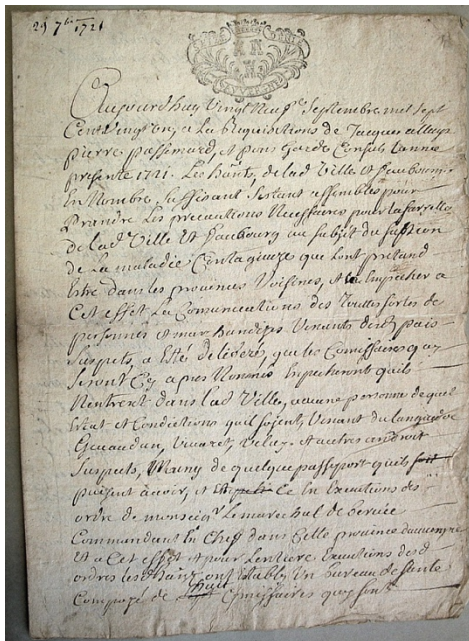 29 7bre 1721
Aujourdhuy Vingt Neuf Septembre mil sept
Cent Vingt un, a La Requisitions de Jacques
pierre passemard, et pons garde Consuls Lannee
presente 1721. Les hants de lad Ville et faubourg
En Nombre suffisant sestant assemblés pour
Prandre Les precautions Necessaires pour la
de lad Ville Et faubourg au subjet du
de La maladie Contagieuze que Lont pretand
Estre dans les provinces Voisines, et Empecher a
Cet effet La Comunications des Toutes sortes de
personnes et marchandizes Venants desd pais
suspects, a Este deliberé, que les Comissaires quy
seront Cy apres Nommés Empecheront quils
Nentrent dans lad Ville, aucune personne de quel
Etat et Conditions quil soient, Venant du Languedoc
Gevaudan, Vivaret, Veley, et autres androit
suspects, Muny de quelque passeport quils
puissent avoir, et Ce En Executions des
ordre de monseigr Le marechal de
Commandant En Chef dans Cette province dauvergne
Et a Cet effet et pour Lentiere Executions desd
ordres les hants ont Estably Un Bureau de sante
Compozé de huit Comissaires quy sont